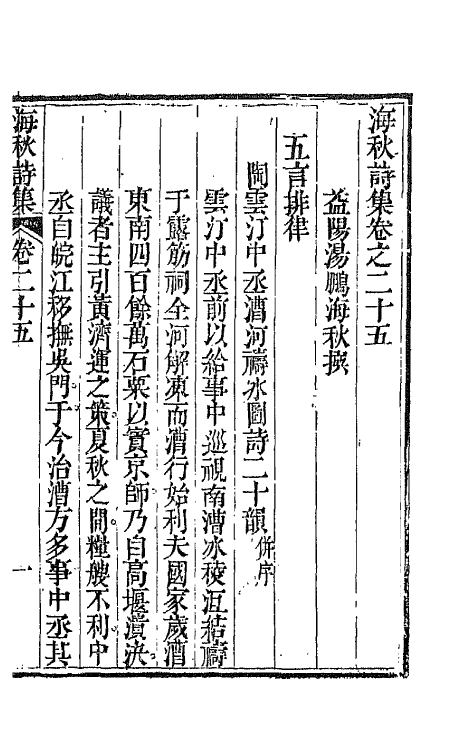 海秋詩集卷之二十五
益陽湯鵬海秋撰
五言排律
陶雲汀中丞漕河禱冰圖詩二十韻 併序
雲汀中丞前以給事中巡視南漕冰稜沍結禱
于露筋祠全河解凍而漕行始利夫國家歲漕
東南四百餘萬石粟以實京師乃自高堰潰決
議者主引黃濟運之策夏秋之間糧艘不利中
丞自皖江移撫吳門于今治漕方多事中丞其
海秋詩集 卷二十五 一